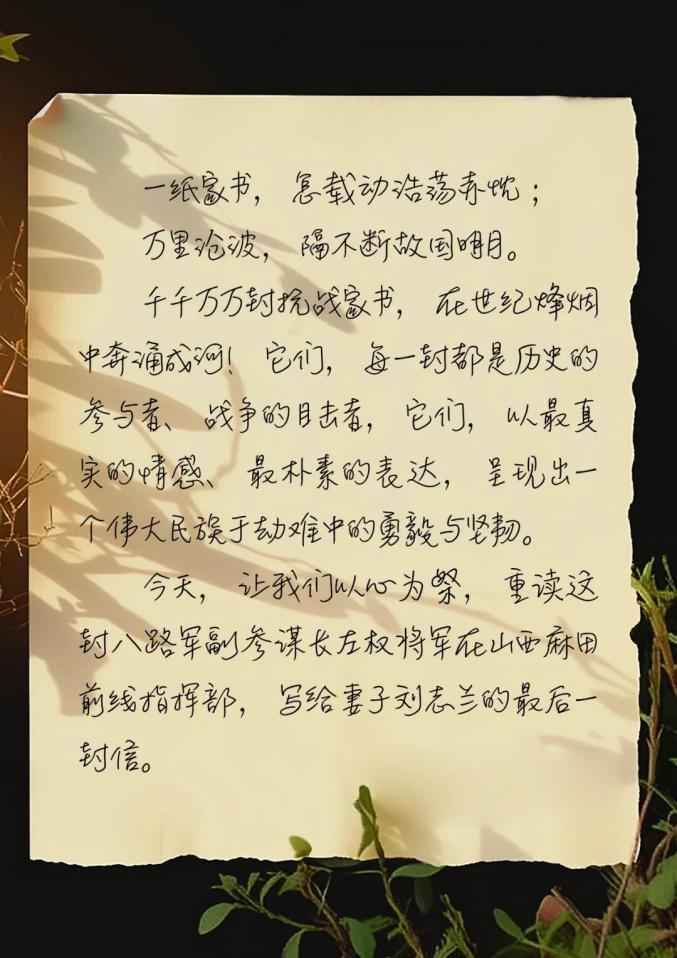 一纸家书，怎载动浩荡赤忱；
万里沧波，隔不断故国明月。
千千万万封抗战家书，在世纪烽烟
中奔涌成河！它们，每一封都是历史的
参与者、战争的目击者，它们，以最真
实的情感、最朴素的表达，呈现出一
个伟大民族于劫难中的勇毅与坚韧。
今天，让我们以心为祭，重读这
封八路军副参谋长左权将军在山西麻田
前线指挥部，写给妻子刘志兰的最后一
封信。